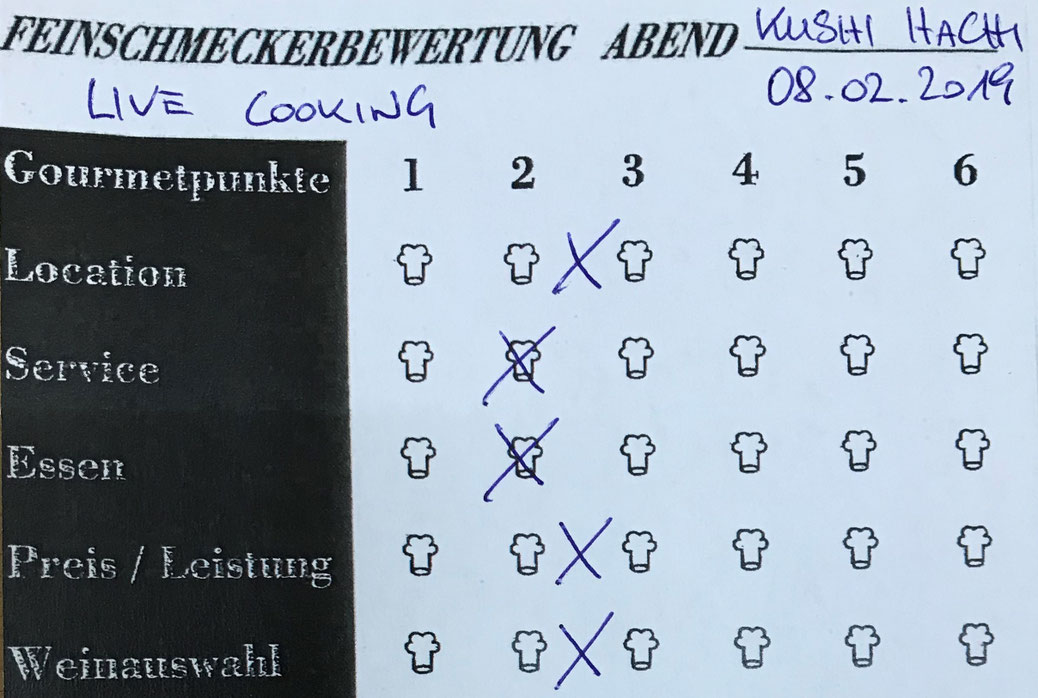 FEINSCHMECKERBEWERTUNG ABEND KUSHI HACHI
LIVE COOKING 08.02.2019
Gourmetpunkte 1 2 3 4 5 6
Location
Service
Essen
Preis / Leistung
Weinauswahl